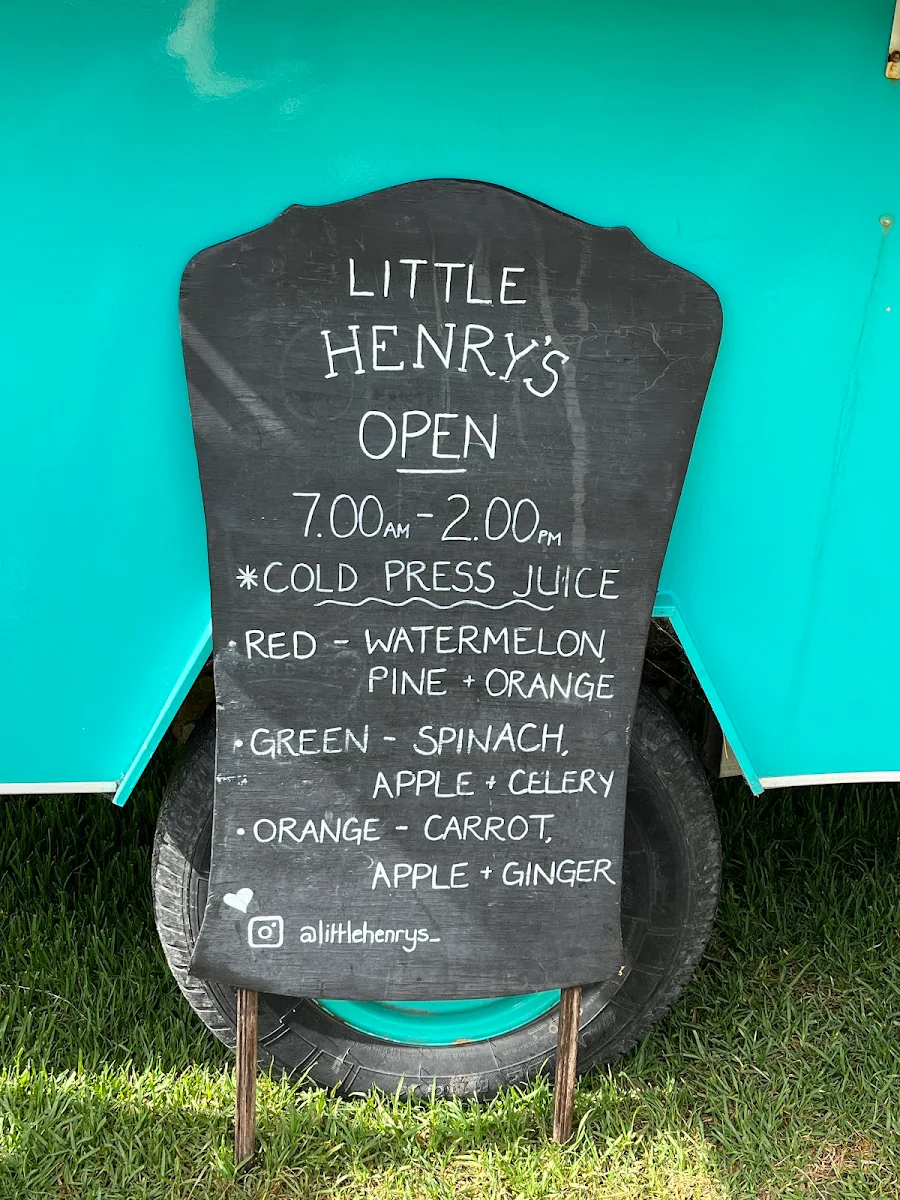 LITTLE
HENRY'S
OPEN
7.00AM - 2.00PM
*COLD PRESS JUICE
• RED - WATERMELON,
PINE + ORANGE
• GREEN - SPINACH,
APPLE + CELERY
• ORANGE - CARROT,
APPLE + GINGER
@littlehenrys_